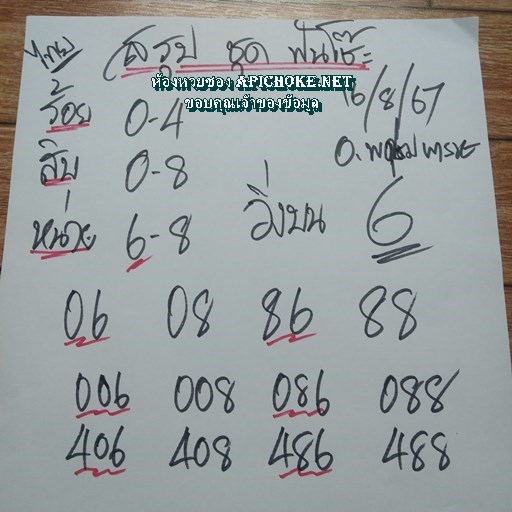 ไทย สรุป ชุด ฟันโช๊ะ
ห้องหวยซอง APICHOKE.NET
ขอบคุณเจ้าของข้อมูล
ร้อย 0-4 16/8/67
สิบ 0-8
หน่วย 6-8 วิ่งบน 6
06 08 86 88
006 008 086 088
406 408 486 488